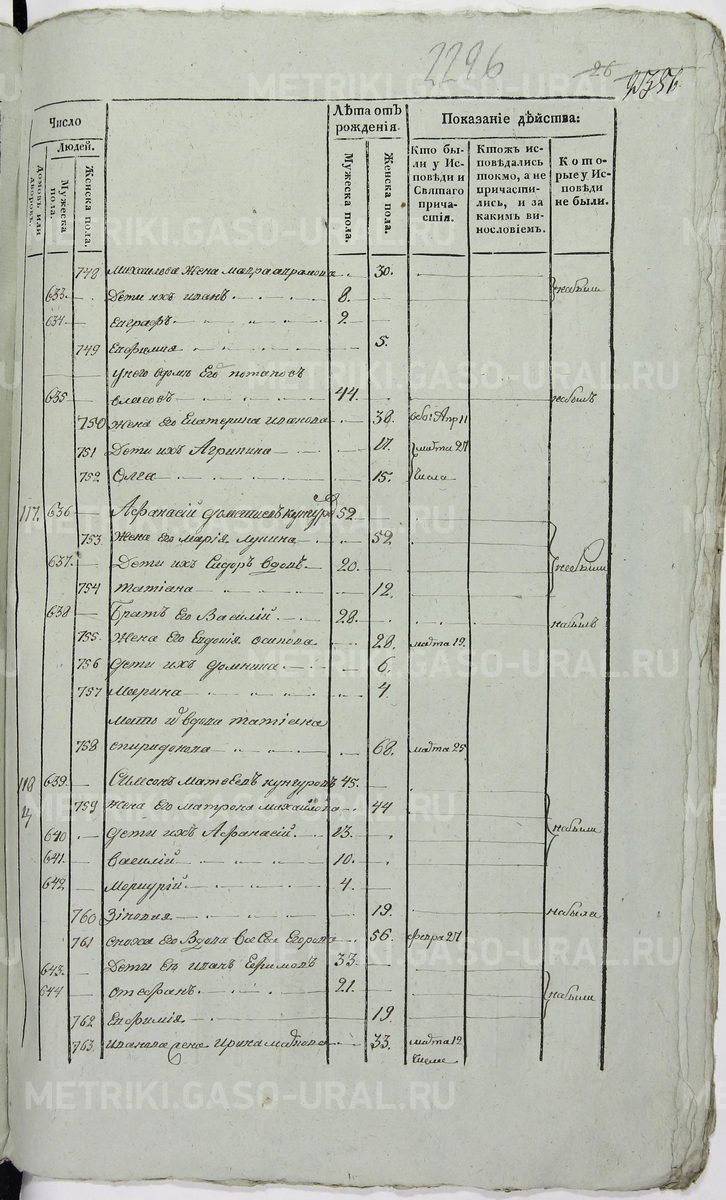 2296
26
Число
Людей.
Домовъ или дворовъ.
Мужеска пола.
Женска пола.
Лѣта отъ рожденія.
Мужеска пола.
Женска пола.
Показаніе дѣйства:
Кто были у Исповѣди и Святаго причастія.
Ктожъ исповѣдались токмо, а не причастились, и за какимъ винословіемъ.
Которые у Исповѣди не были.
748 михаилова жена мавра аврамова 30.
633 Дети ихъ иванъ 8. небыли
634 Евграфъ 2.
749 Евфимия 5.
у него въ домѣ Его потаповъ
635 власовъ 44. небылъ
750 жена его Екатерина иванова 38. Апр 11
751 Дети ихъ Агрипина 17. марта 27
752 Олга 15. числа
117. 636 Афанасій 52
753. жена его марія лукина 52. небыли
637. Дети ихъ Сидоръ вдовъ 20.
754 татиана 12.
638 Братъ его Василій 28. небылъ
755. жена Его Евдокія осипова 28. марта 19.
756 дети ихъ домнина 6.
757 марина 4
мать их вдова татиана
758 спиридонова 68. марта 25
118 639. Симеонъ матвеевъ кунгуровъ 45.
759 жена его матрона михайлова 44 небыли
640 дети ихъ Афанасій 13.
641. Василій 10.
642 меркурій 4.
760 Зиновия 19. небыла
761 сноха его вдова васса Егорова 56. февра 27
643. Дети ея иванъ Ефимовъ 33.
644 стефанъ 21. небыли
762 Евфимія 19.
763. иванова жена Ирина 33. марта 19
числе
METRIKI.GASO-URAL.RU